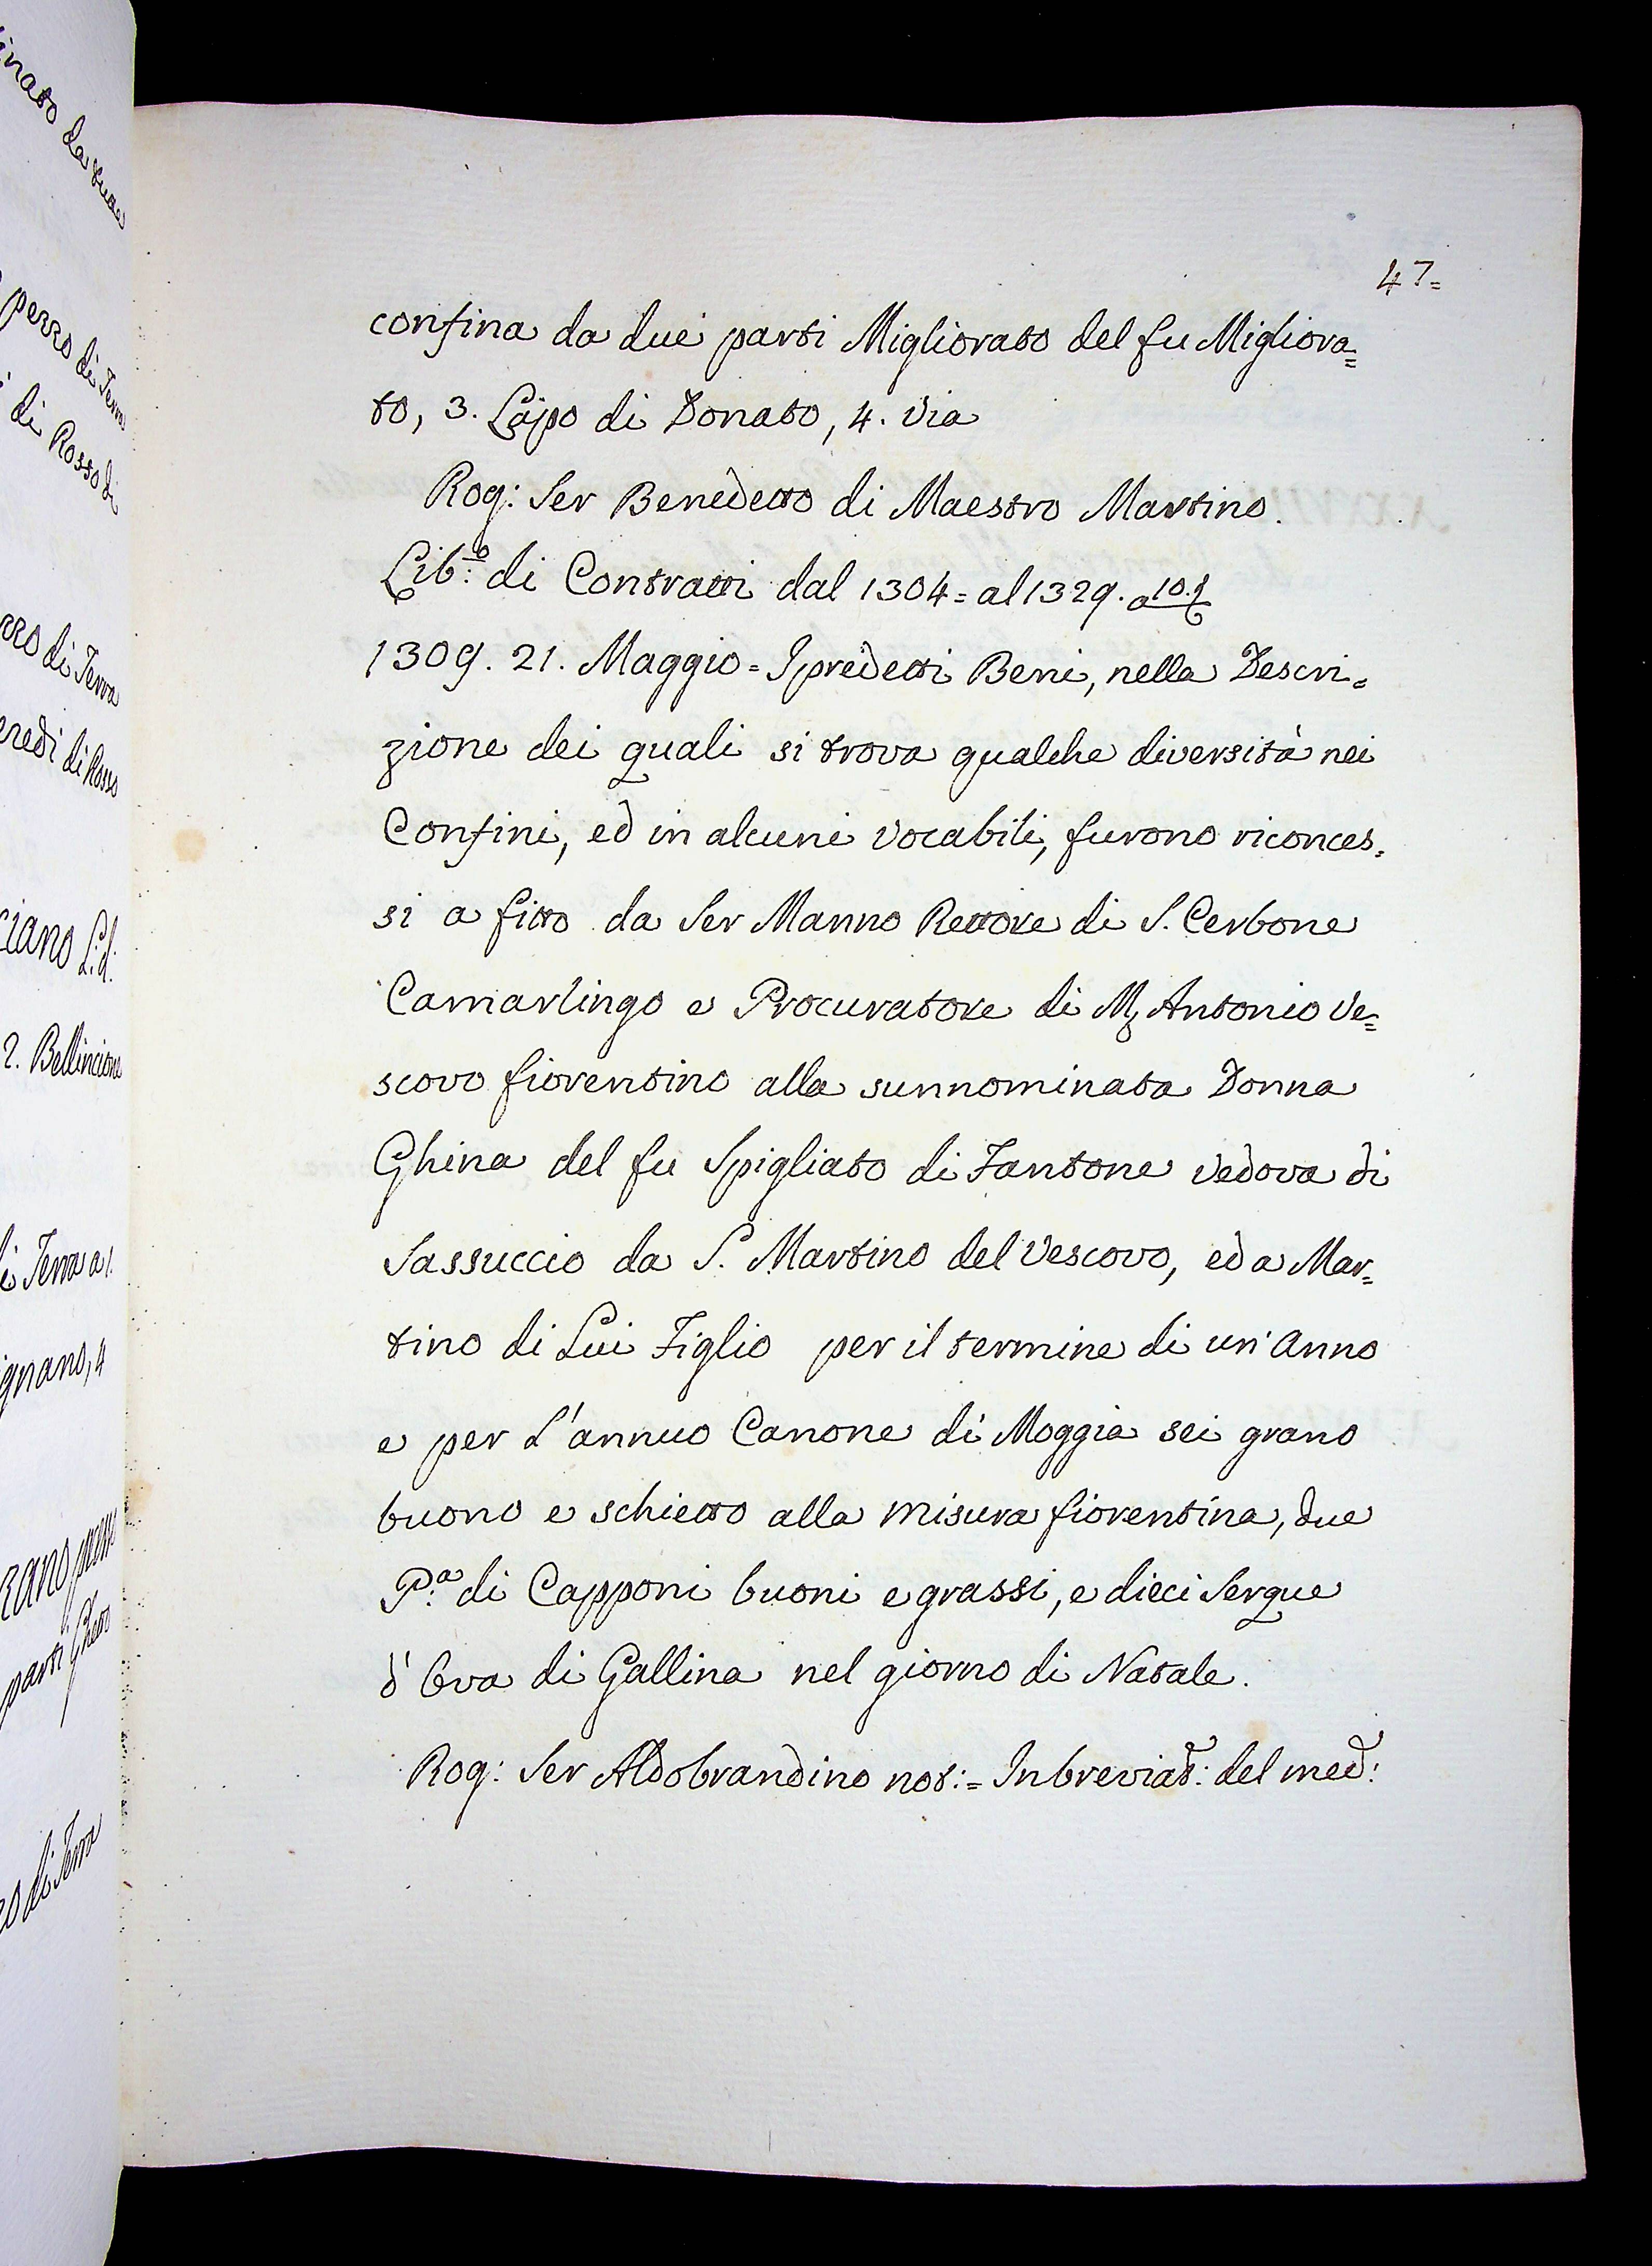 47=
confina da due parti Migliorato del fu Migliora=
to, 3. Lapo di Donato, 4. Via
Rog: Ser Benedetto di Maestro Martino.
Lib:º di Contratti dal 1304= al 1329. a
1309. 21. Maggio = I predetti Beni, nella Descri=
zione dei quali si trova qualche diversità nei
Confini, ed in alcuni Vocabili, furono riconces=
si a fitto da Ser Manno Rettore di S. Cerbone
Camarlingo e Procuratore di M. Antonio Ve=
scovo fiorentino alla sunnominata Donna
Ghina del fu Spigliato di Fantone Vedova di
Sassuccio da S. Martino del Vescovo, ed a Mar=
tino di Lui Figlio per il termine di un' Anno
e per L'annuo Canone di Moggia sei grano
buono e schietto alla Misura fiorentina, due
P:ª di Capponi buoni e grassi, e dieci Serque
d'Ova di Gallina nel giorno di Natale.
Rog: Ser Aldobrandino not: = Inbreviat: del med:
perro di Terra
di Rosso di
di Terra
eredi di Rosso
2. Bellincione
di Terra a 1.
di Terra